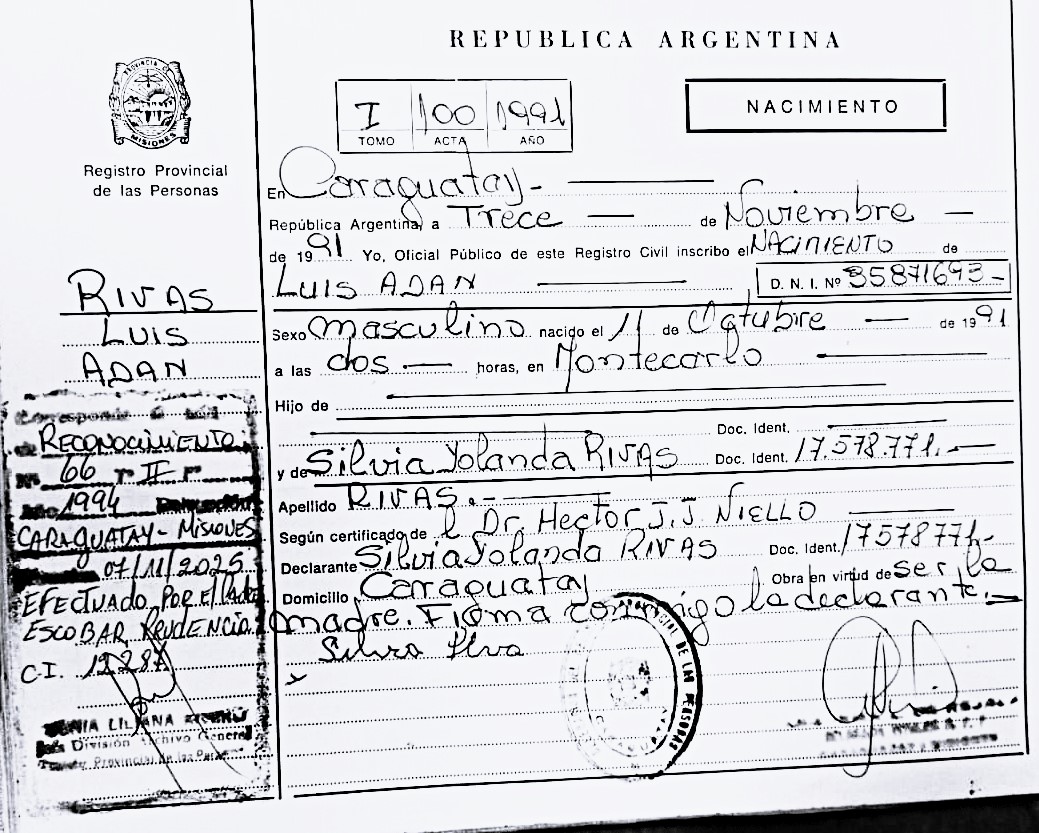 REPUBLICA ARGENTINA
PROVINCIA DE
MISIONES
Registro Provincial
de las Personas
I 100 1991
TOMO ACTA AÑO
NACIMIENTO
En Caraguatay -
República Argentina, a Trece de Noviembre
de 1991 Yo, Oficial Público de este Registro Civil inscribo el NACIMIENTO de
LUIS ADAN D. N. I. Nº 35871693 -
Sexo masculino nacido el 11 de Octubre de 1991
a las dos horas, en Montecarlo
Hijo de
Doc. Ident.
y de Silvia Yolanda RIVAS Doc. Ident. 17.578.771.-
Apellido RIVAS.-
Según certificado de l Dr. Hector J.J. NIELLO
Declarante Silvia Yolanda RIVAS Doc. Ident. 17578771-
Domicilio Caraguatay Obra en virtud de ser la
madre. Firma conmigo la declarante.
RIVAS
LUIS
ADAN
Corresponde
RECONOCIMIENTO
66 T II
1994
CARAGUATAY - MISIONES
07/11/2025
EFECTUADO POR el
ESCOBAR, PRUDENCIO
C.I.
División Archivo General
Provincial de las
DE LAS PERSONAS